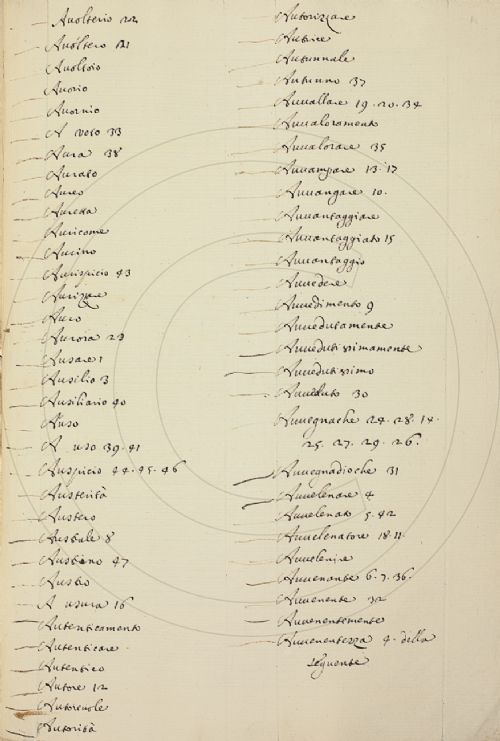 Avolterio 22
Avoltero 121
Avoltoio
Avorio
Avornio
A voto 33
Aura 38
Aurato
Aureo
Auretta
Auricome
Aurino
Aurispicio 43
Aurizare
Auro
Aurora 23
Ausare 1
Ausilio 3
Ausiliario 40
Auso
A uso 39. 41
Auspicio 44. 45. 46
Austerità
Austero
Australe 8
Austrino 47
Austro
A usura 16
Autenticamente
Autenticare
Autentico
Autore 12
Autorevole
Autorità
Autorizzare
Autrice
Autunnale
Autunno 37
Avvallare 19. 20. 34
Avvaloramento
Avvalorare 35
Avvampare 13. 17
Avvangare 10.
Avvantaggiare
Avvantaggiato 15
Avvantaggio
Avvedere
Avvedimento 9
Avvedutamente
Avvedutissimamente
Avvedutissimo
Avveduto 30
Avvegnache 24. 28. 14.
25. 27. 29. 26.
Avvegnadioche 31
Avvelenare 4
Avvelenato 5. 42
Avvelenatore 18. 11.
Avvelenire
Avvenante 6. 7. 36.
Avvenente 32
Avvenentemente
Avvenentezza 4. della
seguente